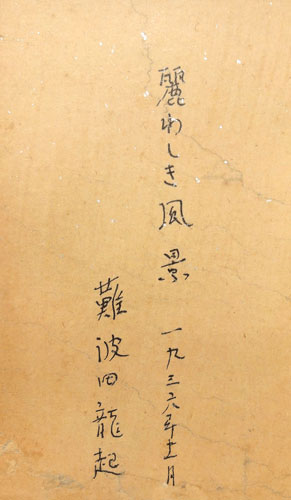 麗わしき風景 一九三六年十一月
難波田龍起